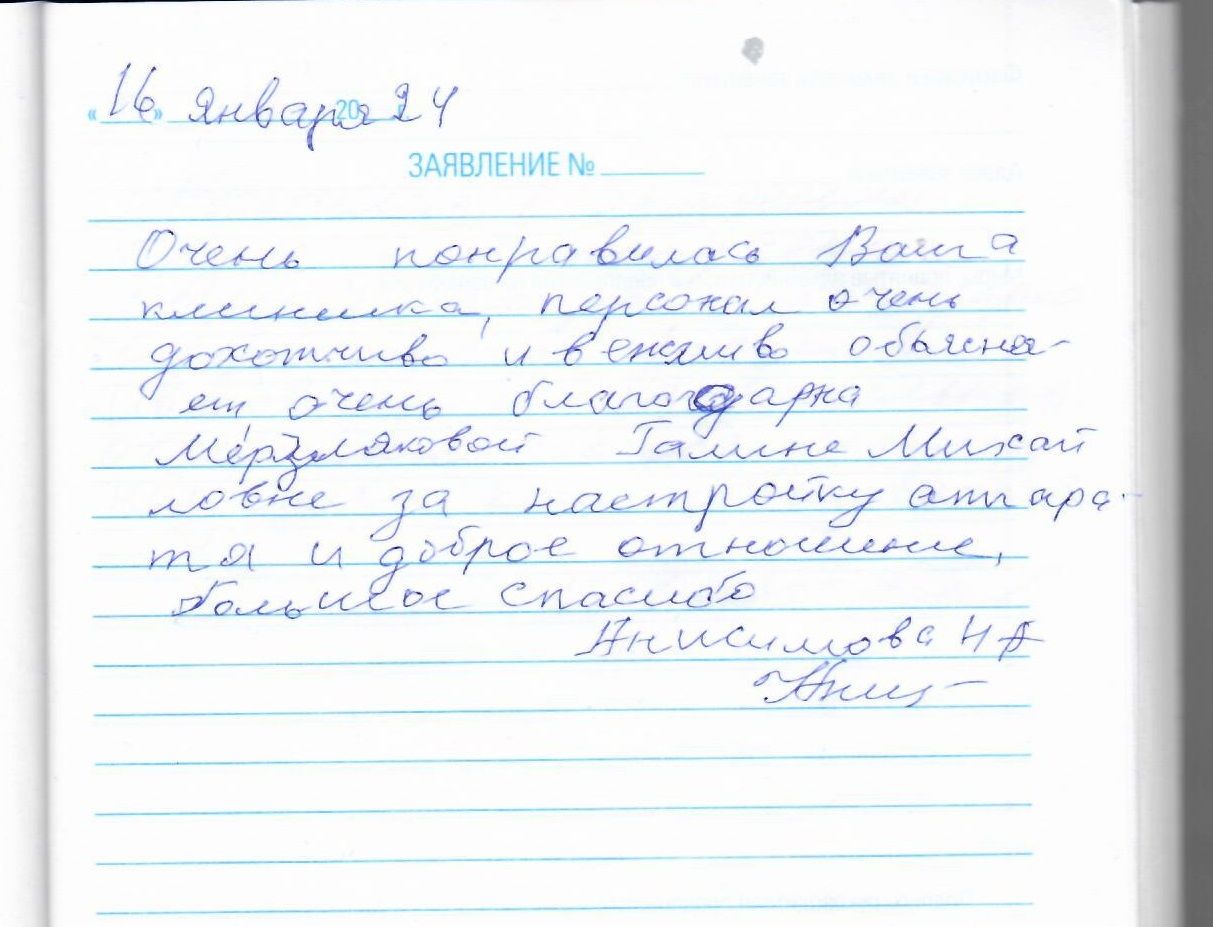 «16» января 2024
ЗАЯВЛЕНИЕ № ______
Очень понравилась Ваша
клиника, персонал очень
дохотчиво и вежливо объясня-
ет, очень благодарна
Мерзляковой Галине Михай
ловне за настройку аппара-
та и доброе отношение,
большое спасибо
Анисимова НА